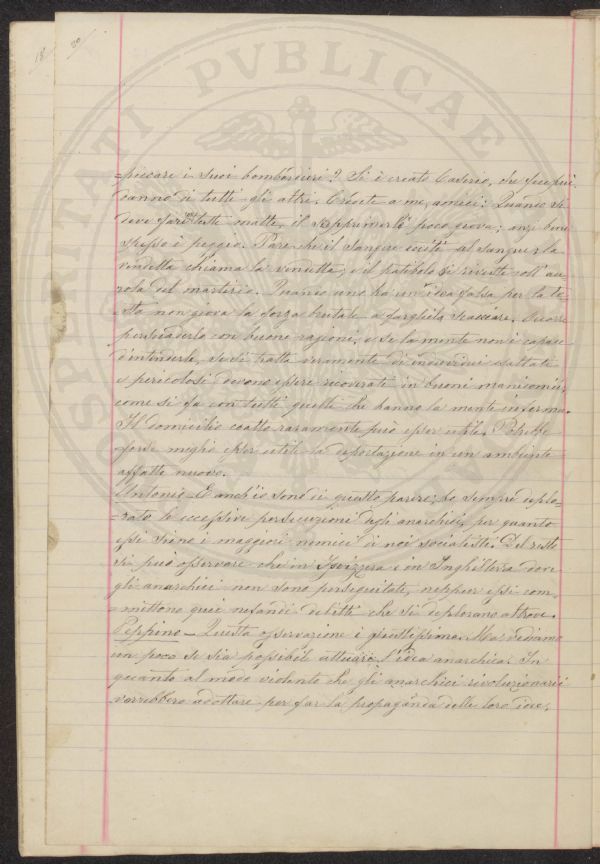 18 20
PROSPERITATI PVBLICAE
=piccare i suoi bombardieri? Si è creato Caserio, che fece più
danno di tutti gli altri. Credete a me, amici: Quando si
deve fare con teste matte, il sopprimerle poco giova; anzi bene
spesso è peggio. Pare che il sangue ecciti al sangue, la
vendetta chiama la vendetta, e il patibolo si riveste coll'au=
reola del martirio. Quando uno ha un'idea falsa per la te=
sta non giova la forza brutale a fargliela scacciare. Occorre
persuaderlo con buone ragioni, e se la mente non è capace
d'intenderle, se si tratta veramente di individui esaltati
e pericolosi devono essere ricoverati in buoni manicomii,
come si fa con tutti quelli che hanno la mente inferma.
Il domicilio coatto raramente può esser utile. Potrebbe
forse meglio esser utile la deportazione in un ambiente
affatto nuovo.
Antonio – E anch'io sono di questo parere; ho sempre deplo=
=rato le eccessive persecuzioni degli anarchici, per quanto
essi sieno i maggiori nemici di noi socialisti. Del resto
si può osservare che in Isvizzera e in Inghilterra dove
gli anarchici non sono perseguitati, neppur essi com=
=mettono quei nefandi delitti che si deplorano altrove.
Peppino – Questa osservazione è giustissima. Ma vediamo
un poco se sia possibile attuare l'idea anarchica. In
quanto al modo violento che gli anarchici rivoluzionarii
vorrebbero adottare per far la propaganda delle loro idee,